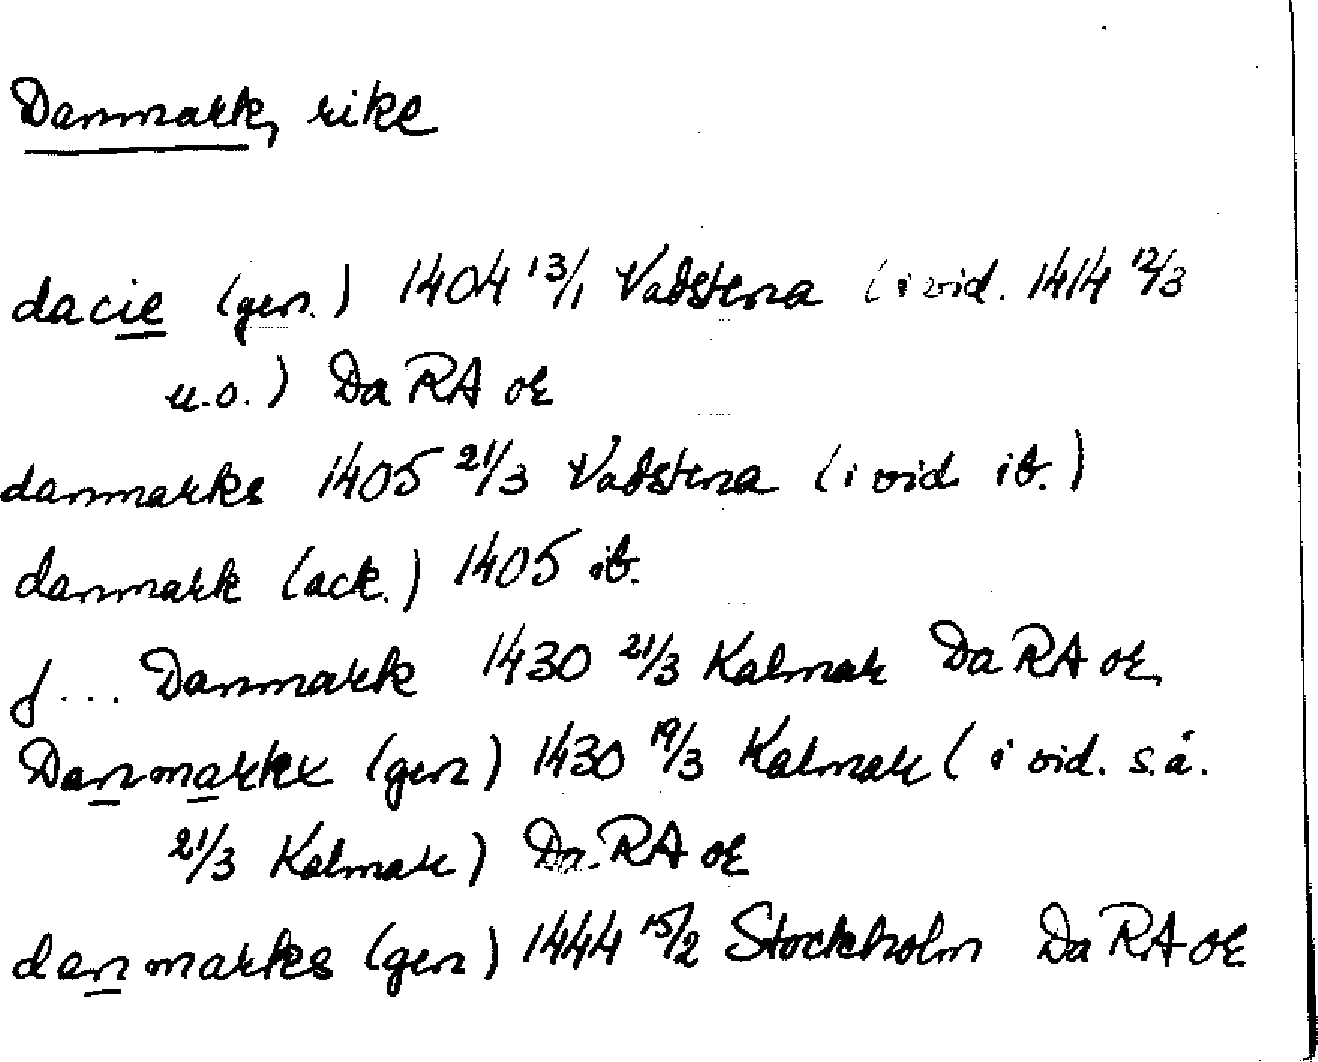 Danmark, rike
dacie (gen.) 1404 13/1 Vadstena (i vid. 1414 12/3
u.o.) Da RA or
danmarks 1405 21/3 Vadstena (i vid. ib.)
danmark (ack.) 1405 ib.
j ... Danmark 1430 21/3 Kalmar Da RA or
Danmarkx (gen) 1430 19/3 Kalmar (i vid. s.å.
21/3 Kalmar) Da RA or
danmarks (gen) 1444 15/2 Stockholm Da RA or